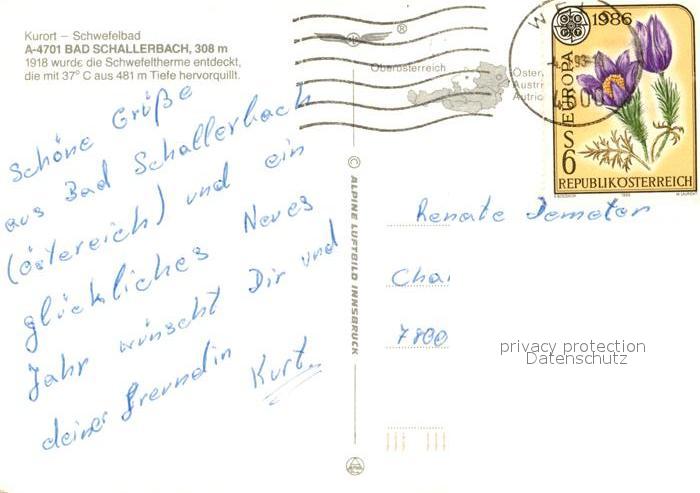 Kurort – Schwefelbad
A-4701 BAD SCHALLERBACH, 308 m
1918 wurde die Schwefeltherme entdeckt,
die mit 37° C aus 481 m Tiefe hervorquillt.
Schöne Grüße
aus Bad Schallerbach
(östereich) und ein
glückliches Neues
Jahr wünscht Dir und
deiner Freundin Kurt.
Oberösterreich
© ALPINE LUFTBILD INNSBRUCK
1986
EUROPA
S 6
REPUBLIK ÖSTERREICH
Renate Demeter
7800
privacy protection
Datenschutz